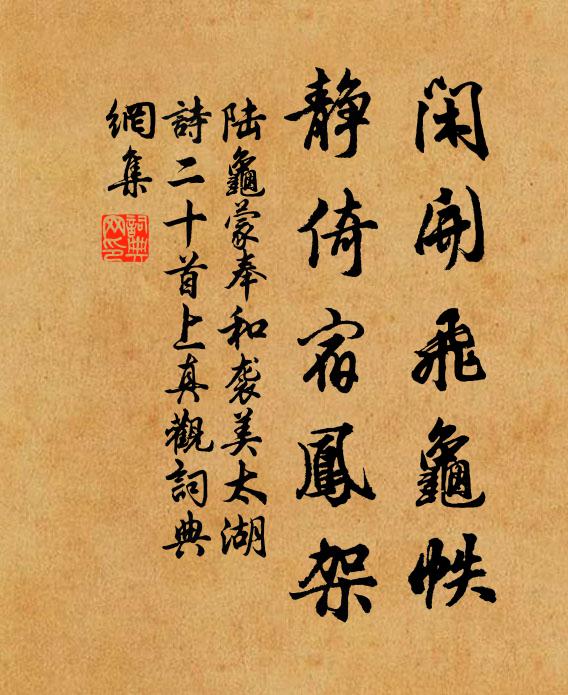 閑開飛龜帙
靜倚宿鳳架
陸龜蒙奉和袭美太湖
詩二十首上真觀詞典
網集
詞典
网印